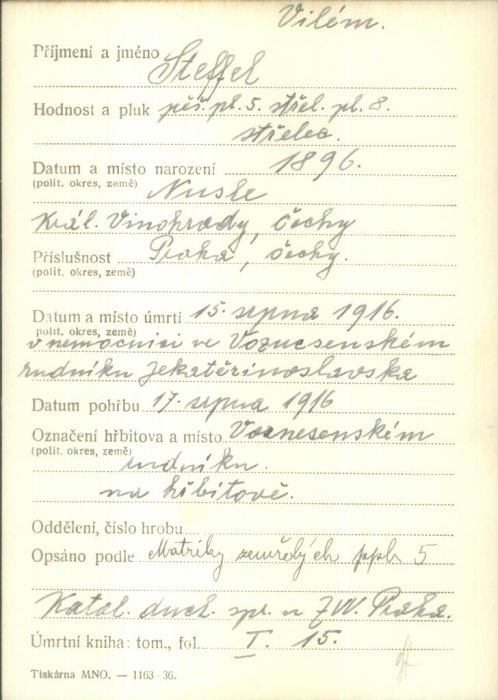 Vilém.
Příjmení a jméno Steffel
Hodnost a pluk pěš. pl. 5. střel. pl. 8.
střelec.
Datum a místo narození 1896.
(polit. okres, země) Nusle
Král. Vinohrady, Čechy
Příslušnost Praha, Čechy.
(polit. okres, země)
Datum a místo úmrtí 15. srpna 1916.
polit. okres, země)
v nemocnici ve Voznesenském
rudníku Jekatěrinoslavska
Datum pohřbu 17. srpna 1916
Označení hřbitova a místo Voznesenském
(polit. okres, země) rudníku.
na hřbitově.
Oddělení, číslo hrobu
Opsáno podle Matriky zemřelých ppl. 5
Katol. duch. spr. u ZVV. Praha.
Úmrtní kniha: tom., fol. I. 15.
Tiskárna MNO. — 1163-36.